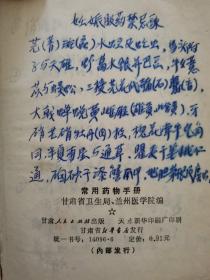 妊娠服药禁忌歌
芫(青)斑(蝥)水蛭及虻虫，乌头附
子与天雄，野葛水银并巴豆，牛膝薏
苡与蜈蚣，三棱芫花代赭(石)麝(香)，
大戟蝉蜕黄雌雄(雌黄雄黄)，牙
硝芒硝牡丹(肉)桂，槐花牵牛皂角
同，半夏南星与通草，瞿麦干姜桃仁
通，硇砂干漆蟹爪甲，地胆茅根
常用药物手册
甘肃省卫生局、兰州医学院编
☆
甘肃人民出版社出版 天水新华印刷厂印刷
甘肃省新华书店发行
统一书号：14096·6 定价：0.91元
（内部发行）